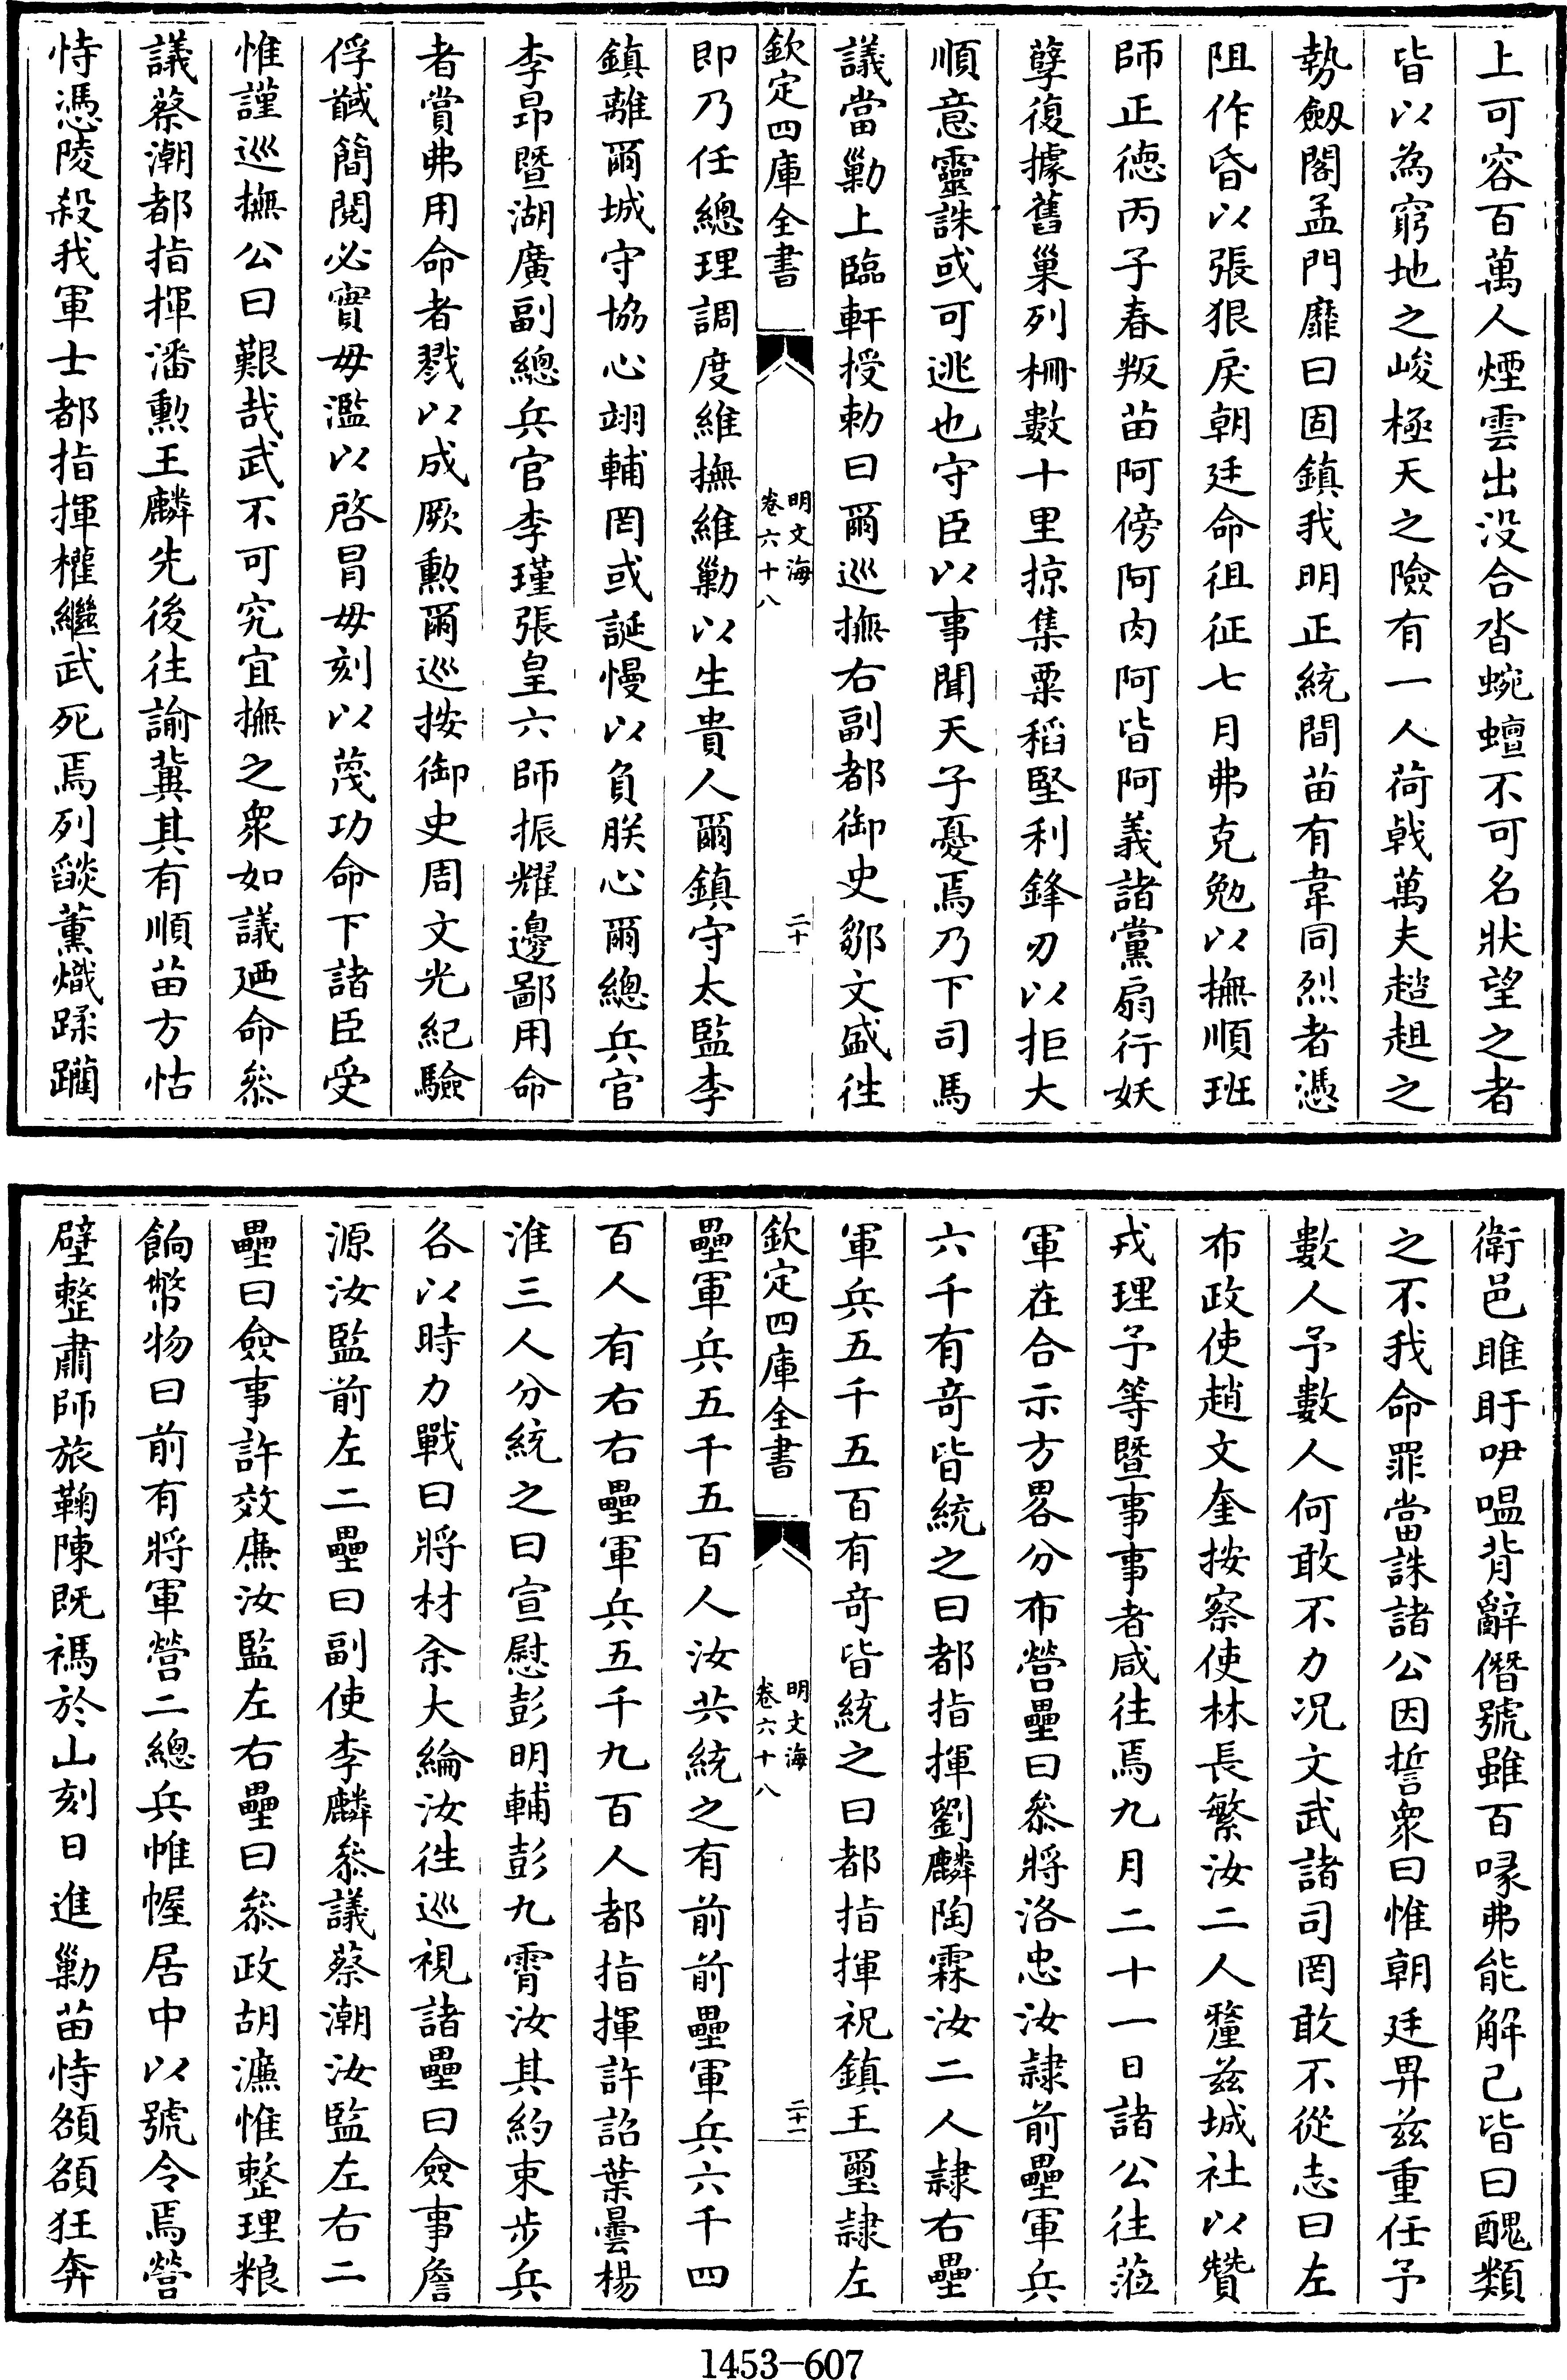 上可容百萬人煙雲出没合沓蜿蟺不可名狀望之者
皆以為窮地之峻極天之險有一人荷㦸萬夫趦趄之
勢劔閣孟門靡曰固鎮我明正統間苗有韋同烈者憑
阻作昏以張狠戾朝廷命徂征七月弗克勉以撫順班
師正徳丙子春叛苗阿傍阿肉阿皆阿義諸黨扇行妖
孽復據舊巢列柵數十里掠集粟稻堅利鋒刃以拒大
順意靈誅或可逃也守臣以事聞天子憂焉乃下司馬
議當勦上臨軒授勅曰爾巡撫右副都御史鄒文盛往
欽定四庫全書
明文海
卷六十八
二十
即乃任總理調度維撫維勦以生貴人爾鎮守太監李
鎮離爾城守協心翊輔罔或誕慢以負朕心爾總兵官
李昂暨湖廣副總兵官李瑾張皇六師振耀邊鄙用命
者賞弗用命者戮以成厥勲爾巡按御史周文光紀驗
俘馘簡閲必實毋濫以啓冒毋刻以蔑功命下諸臣受
惟謹巡撫公曰艱哉武不可究宜撫之衆如議廼命叅
議蔡潮都指揮潘勲王麟先後往諭冀其有順苗方怙
恃憑陵殺我軍士都指揮權繼武死焉列燄薰熾蹂躪
衛邑睢盱吚嗢背辭僭號雖百喙弗能解已皆曰醜類
之不我命罪當誅諸公因誓衆曰惟朝廷畀兹重任予
數人予數人何敢不力况文武諸司罔敢不從志曰左
布政使趙文奎按察使林長繁汝二人釐兹城社以贊
戎理予等暨事事者咸往焉九月二十一日諸公往蒞
軍在合示方畧分布營壘曰叅將洛忠汝隷前壘軍兵
六千有竒皆統之曰都指揮劉麟陶霖汝二人隷右壘
軍兵五千五百有竒皆統之曰都指揮祝鎮王璽隷左
欽定四庫全書
明文海
卷六十八
二十一
壘軍兵五千五百人汝共統之有前前壘軍兵六千四
百人有右右壘軍兵五千九百人都指揮許詔葉曇楊
淮三人分統之曰宣慰彭明輔彭九霄汝其約束步兵
各以時力戰曰將材余大綸汝徃巡視諸壘曰僉事詹
源汝監前左二壘曰副使李麟叅議蔡潮汝監左右二
壘曰僉事許效㢘汝監左右壘曰叅政胡濂惟整理粮
餉幣物曰前有將軍營二總兵帷幄居中以號令焉營
壁整肅師旅鞠陳既禡於山刻日進勦苗恃頟頟狂奔
1453-607